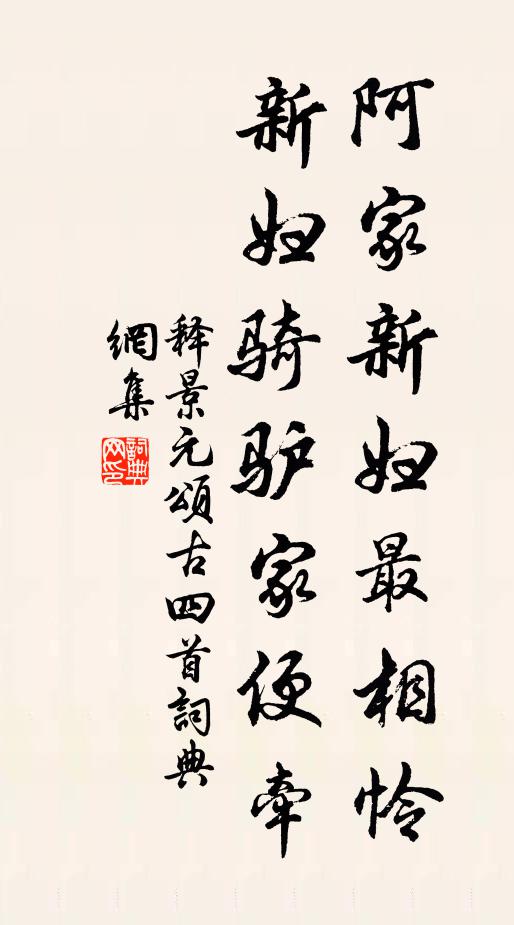 阿家新妇最相怜
新妇骑驴家便牵
释景元頌古四首詞典
網集
詞典
网印